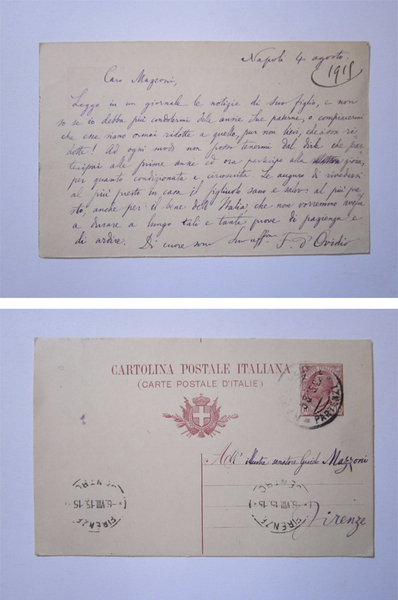 Napoli 4 agosto
1915
Caro Mazzoni,
Leggo in un giornale le notizie di Suo figlio, e non
so se io debba più condolermi delle ansie Sue paterne, o compiacermi
che esse siano ormai ridotte a quello, pur non lievi, che sono ri-
dotte! Ad ogni modo non posso tenermi dal dirle che par-
tecipai alle prime ansie ed ora partecipo alla gioia,
per quanto condizionata e circoscritta. Le auguro di rivedersi
al più presto in casa il figliuolo sano e salvo: al più pre-
sto, anche per il bene dell'Italia, che non vorremmo avesse
a durare a lungo tali e tante prove di pazienza e
di ardire. Di cuore sono Suo aff.mo F. d'Ovidio
CARTOLINA POSTALE ITALIANA
(CARTE POSTALE D'ITALIE)
PARTENZA
All' Illustre senatore Guido Mazzoni
Firenze
FIRENZE
6.VIII.15.15
FIRENZE
6.VIII.15.15